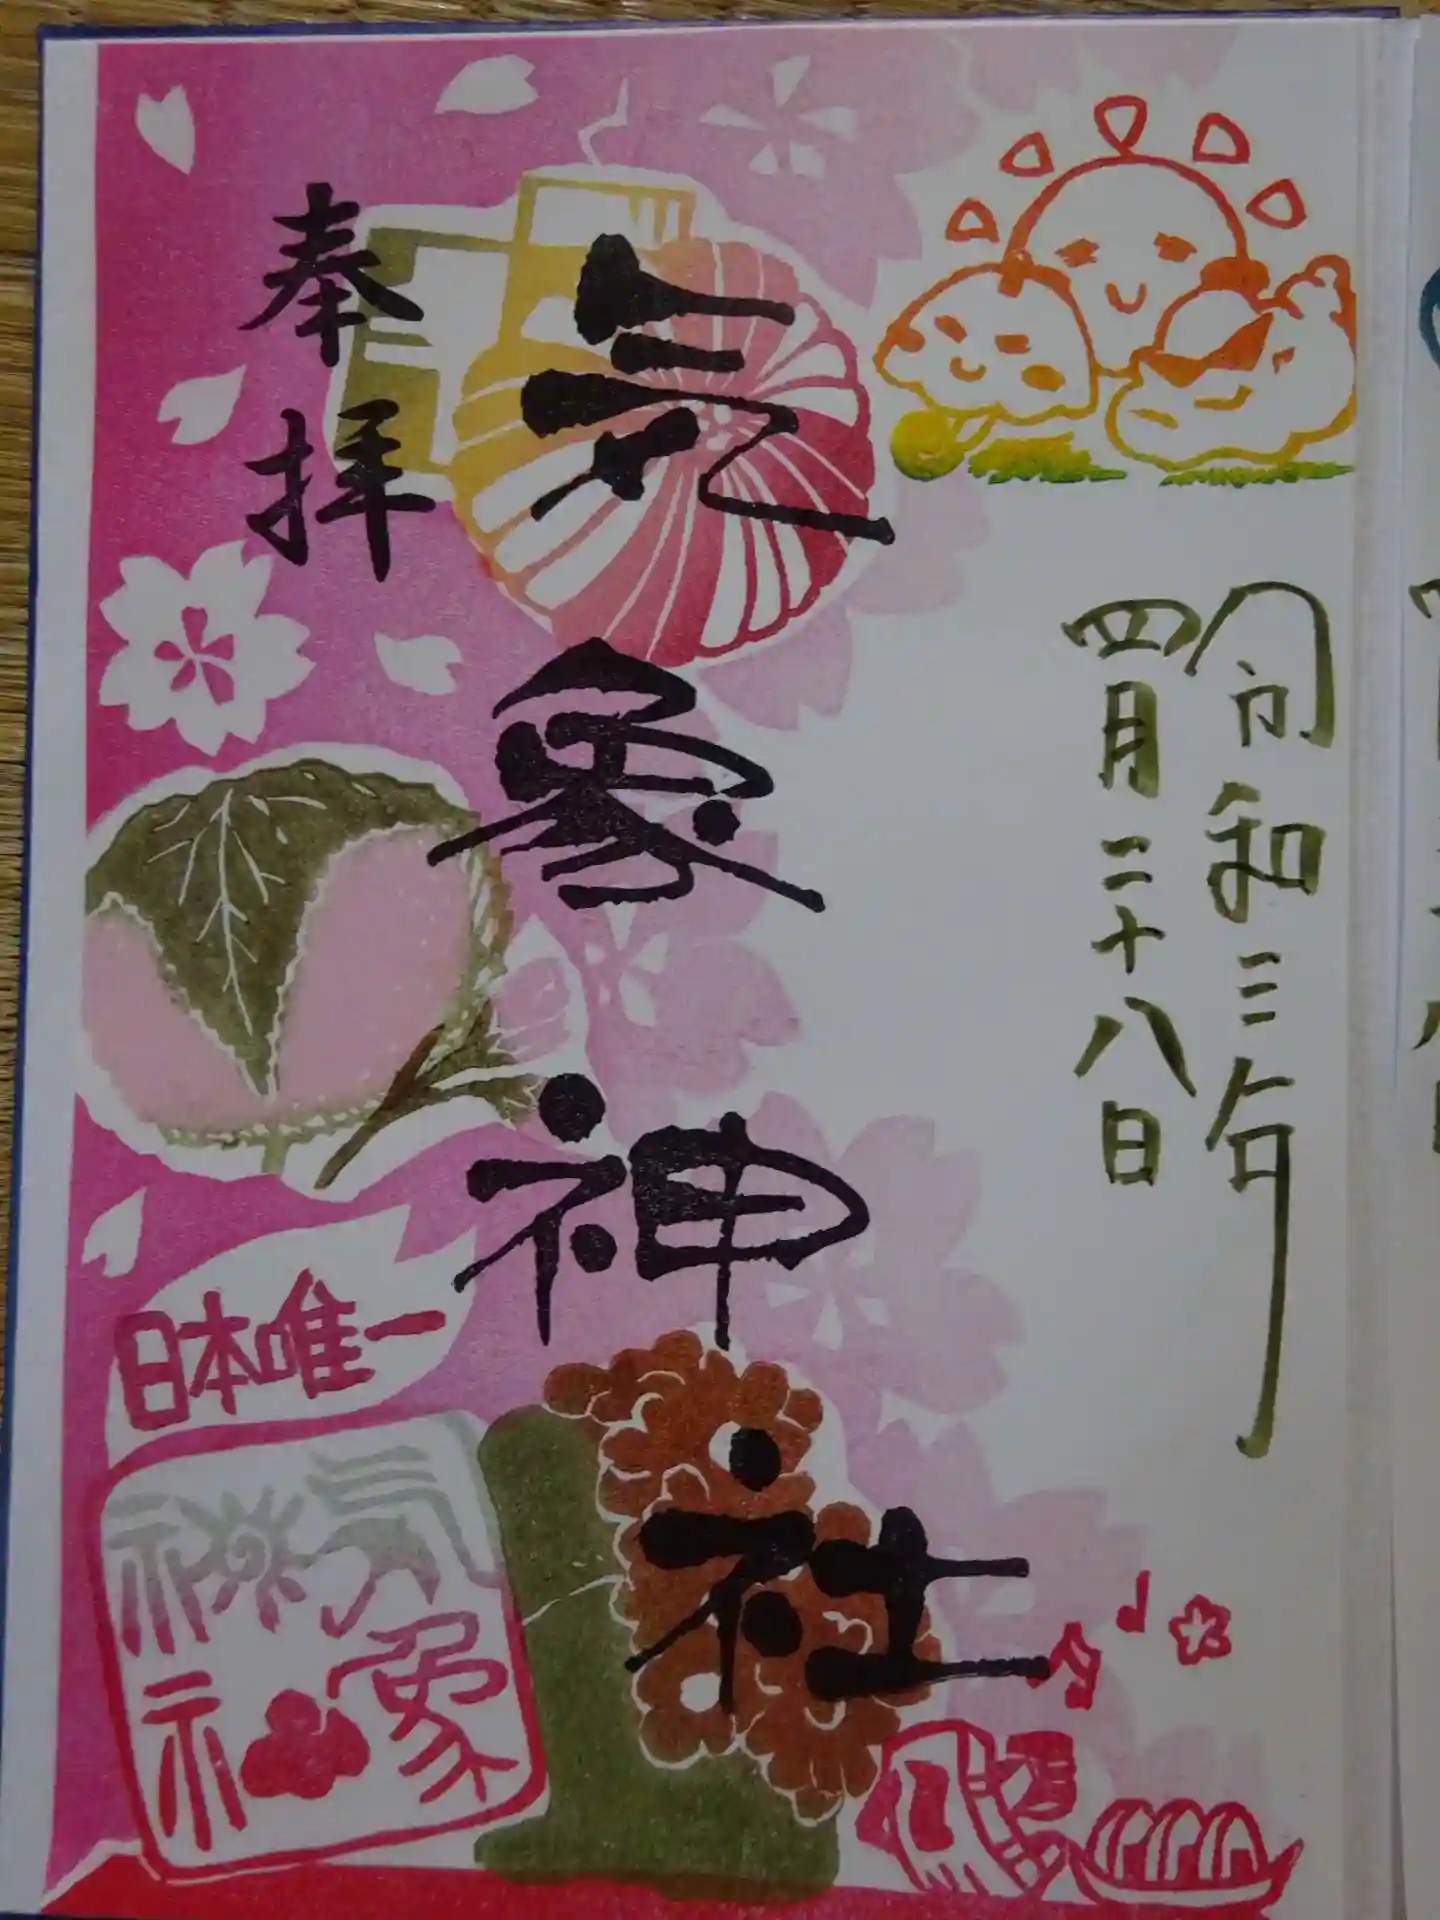 令和三年
四月二十八日
気象神社
奉拝
日本唯一
気象
神社